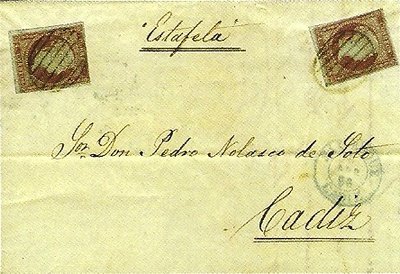 "Estafela"
Sor. Don Pedro Nolasco de Soto
Cadiz